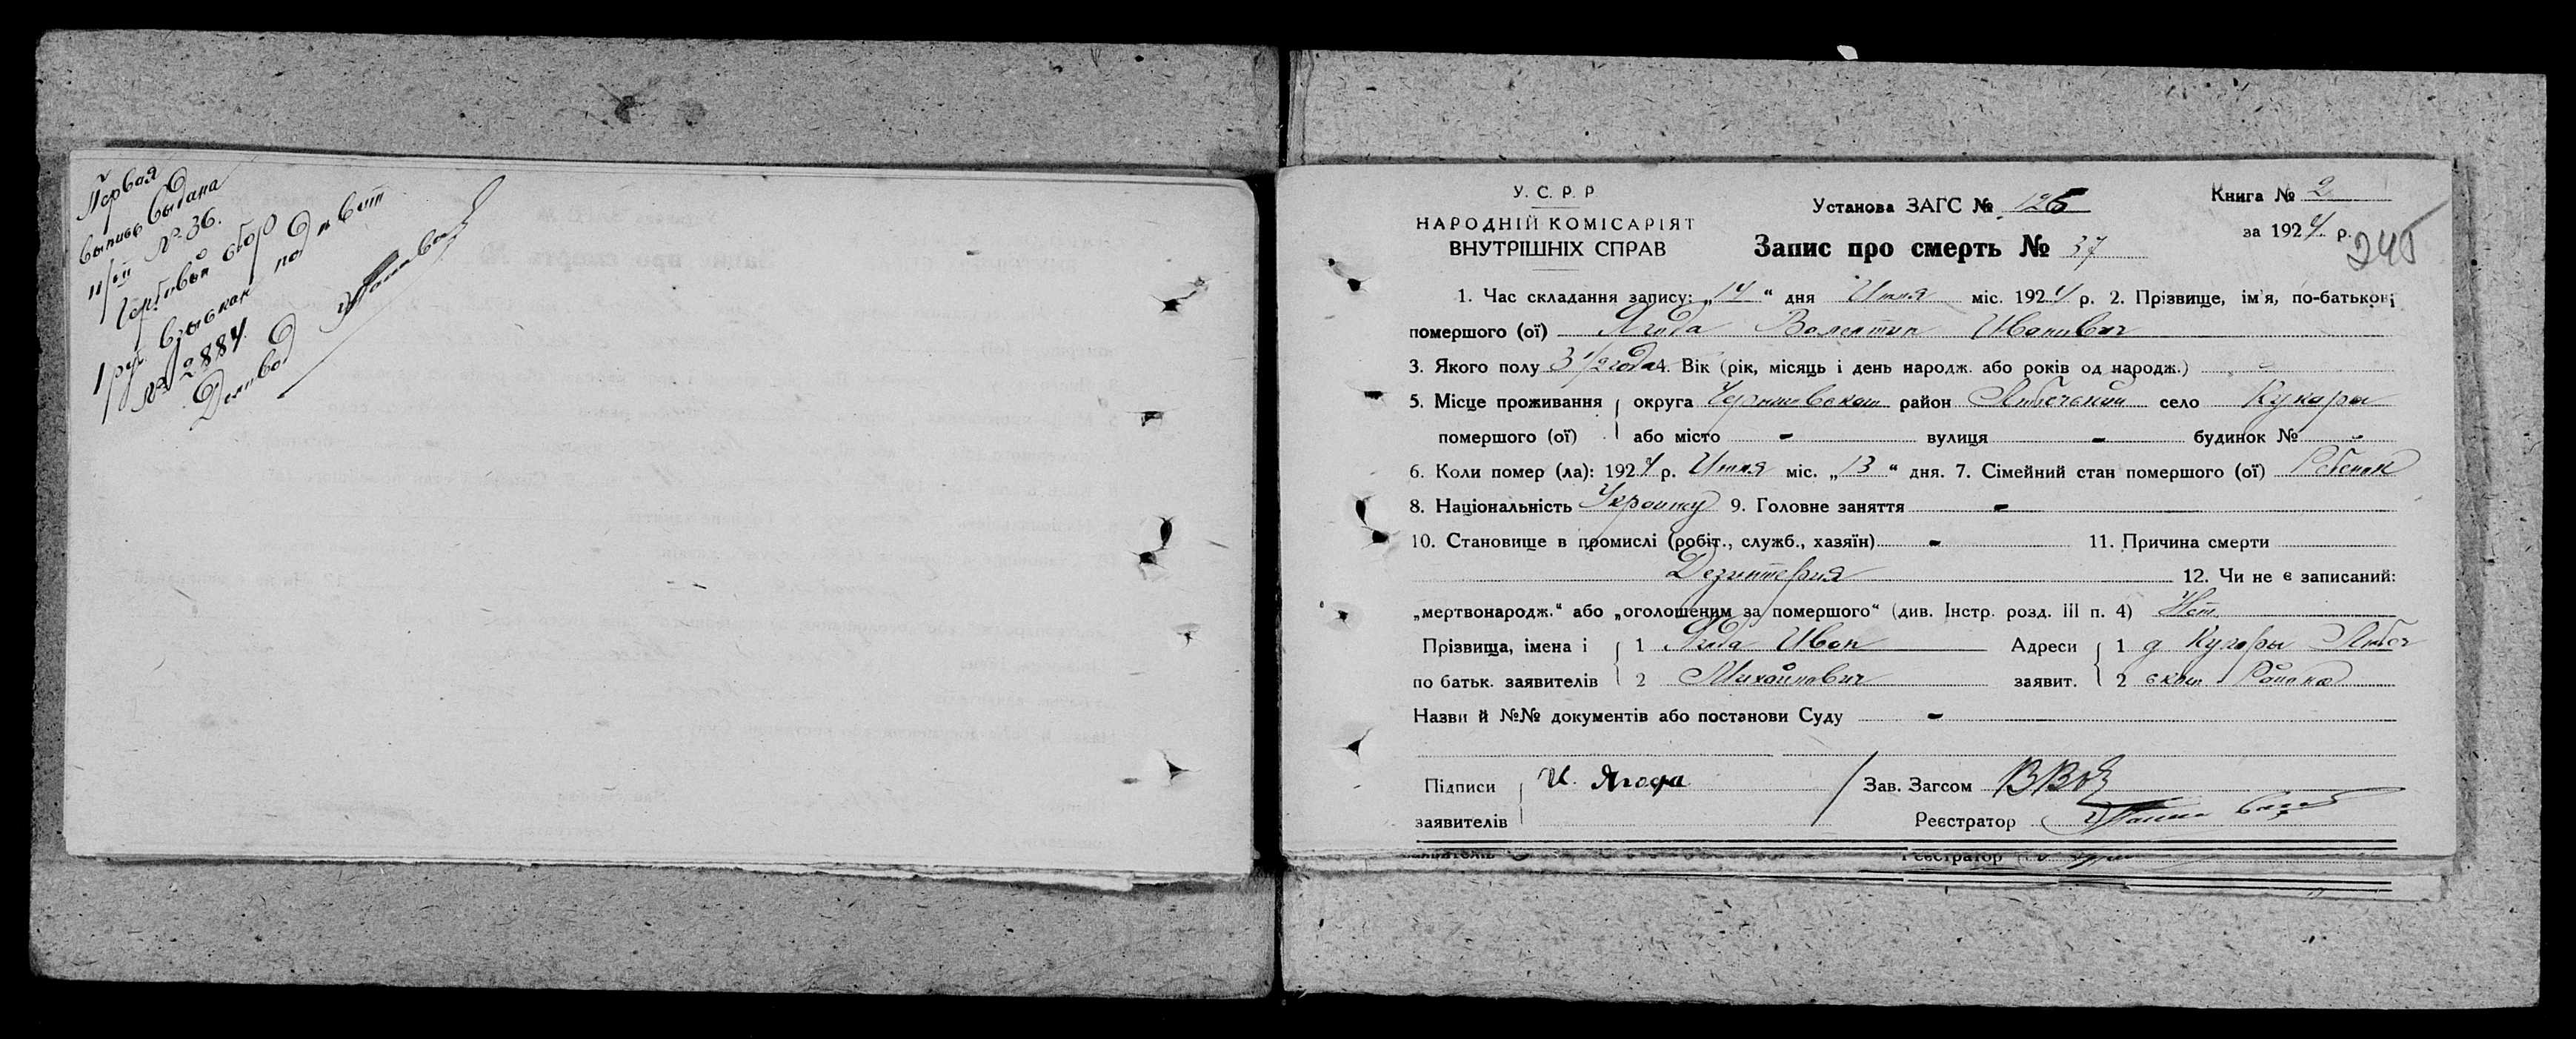 Первая
выпись выдана
11/III № 36.
Гербовый сбор
1 руб. взыскан под квит
№ 2884.
Делопод
У. С. Р. Р.
НАРОДНІЙ КОМІСАРІЯТ
ВНУТРІШНІХ СПРАВ
Установа ЗАГС № 126
Запис про смерть № 37
Книга № 2
за 1924 р.
245
1. Час складання запису: „14“ дня Июля міс. 1924 р. 2. Прізвище, ім'я, по-батькові
помершого (ої) Ягода Валентин Иванович
3. Якого полу 3 1/2 года 4. Вік (рік, місяць і день народж. або років од народж.)
5. Місце проживання округа Черниговская район Любечский село Кукары
помершого (ої) або місто - вулиця - будинок № -
6. Коли помер (ла): 1924 р. Июля міс. „13“ дня. 7. Сімейний стан помершого (ої) Ребенок
8. Національність Украинц 9. Головне заняття -
10. Становище в промислі (робіт., служб., хазяїн) - 11. Причина смерти
Дезинтерия 12. Чи не є записаний:
„мертвонародж.“ або „оголошеним за помершого“ (див. Інстр. розд. III п. 4) Нет
Прізвища, імена і 1 Ягода Иван Адреси 1 д Кугары Любеч
по батьк. заявителів 2 Михайлович заявит. 2 ского Района
Назви й №№ документів або постанови Суду -
Підписи И. Ягода Зав. Загсом
заявителів Реєстратор
заявителів Реєстратор